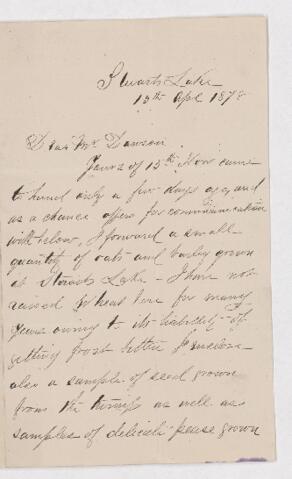 Stuarts Lake
15th Apl 1878
Dear Mr Dawson
Yours of 15th Nov came
to hand only a few days ago, and
as a chance offers for communication
with below, I forward a small
quantity of oats and barley grown
at Stuarts Lake - I have not
raised Wheat here for many
years owing to its liability of
getting frost bitten I enclose
also a sample of seed grown
from the turnips as well as
samples of delicate pease grown